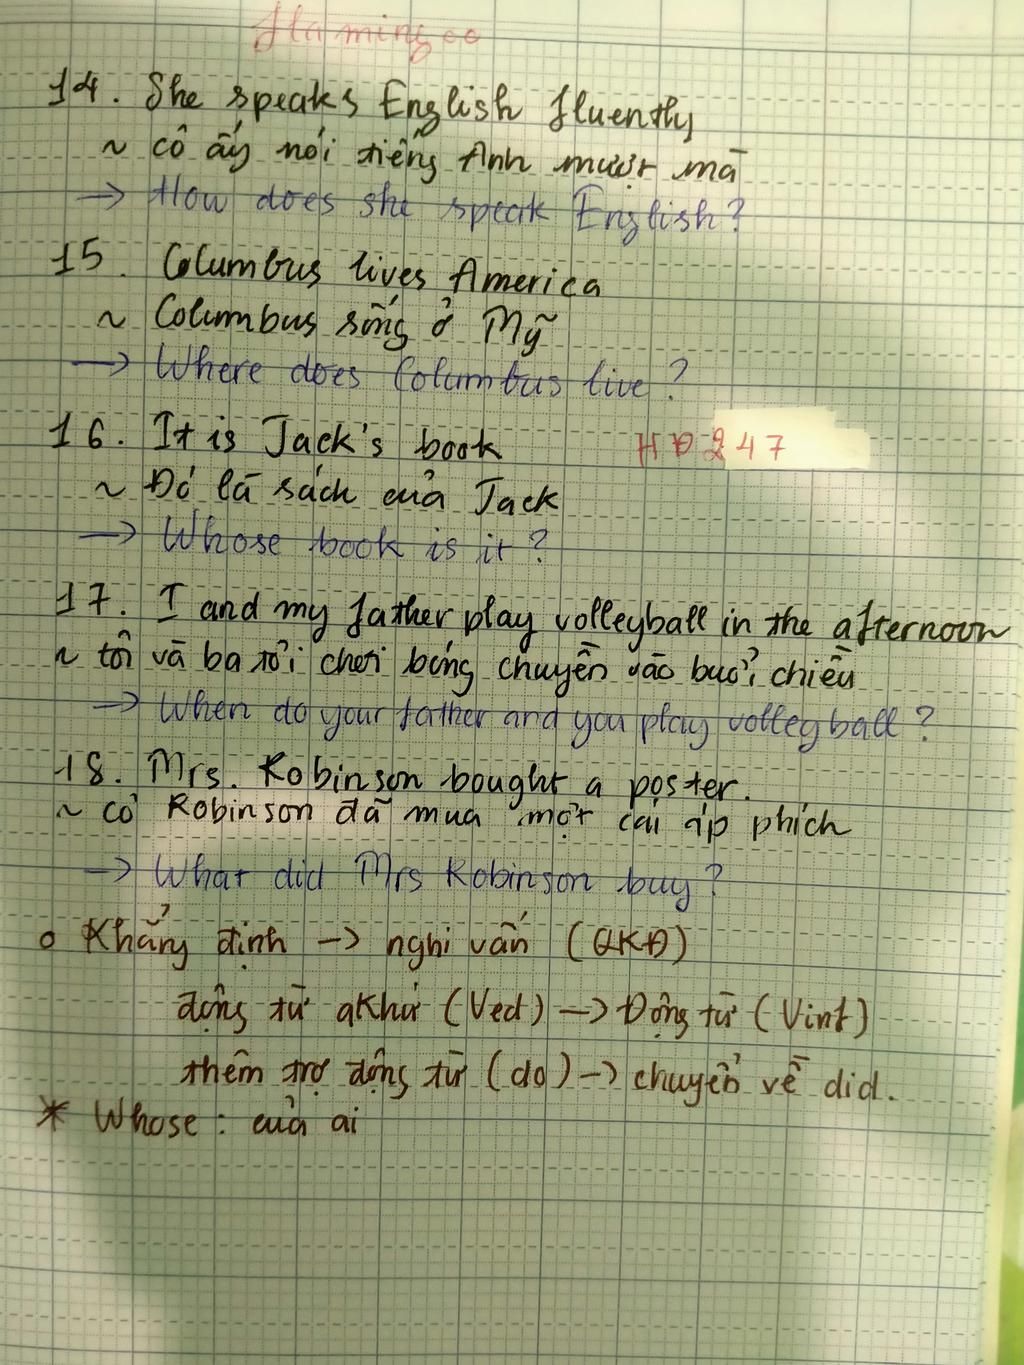 Flamingoo
14. She speaks English fluently
~ cô ấy nói tiếng Anh mượt mà
→ How does she speak English?
15. Columbus lives America
~ Columbus sống ở Mỹ
→ Where does Columbus live?
16. It is Jack's book
HĐ247
~ Đó là sách của Jack
→ Whose book is it?
17. I and my father play volleyball in the afternoon
~ tôi và ba tôi chơi bóng chuyền vào buổi chiều
→ When do your father and you play volleyball?
18. Mrs. Robinson bought a poster.
~ cô Robinson đã mua một cái áp phích
→ What did Mrs Robinson buy?
o Khẳng định → nghi vấn (QKĐ)
động từ qkhứ (Ved) → Động từ (Vinf)
thêm trợ động từ (do) → chuyển về did.
* Whose: của ai